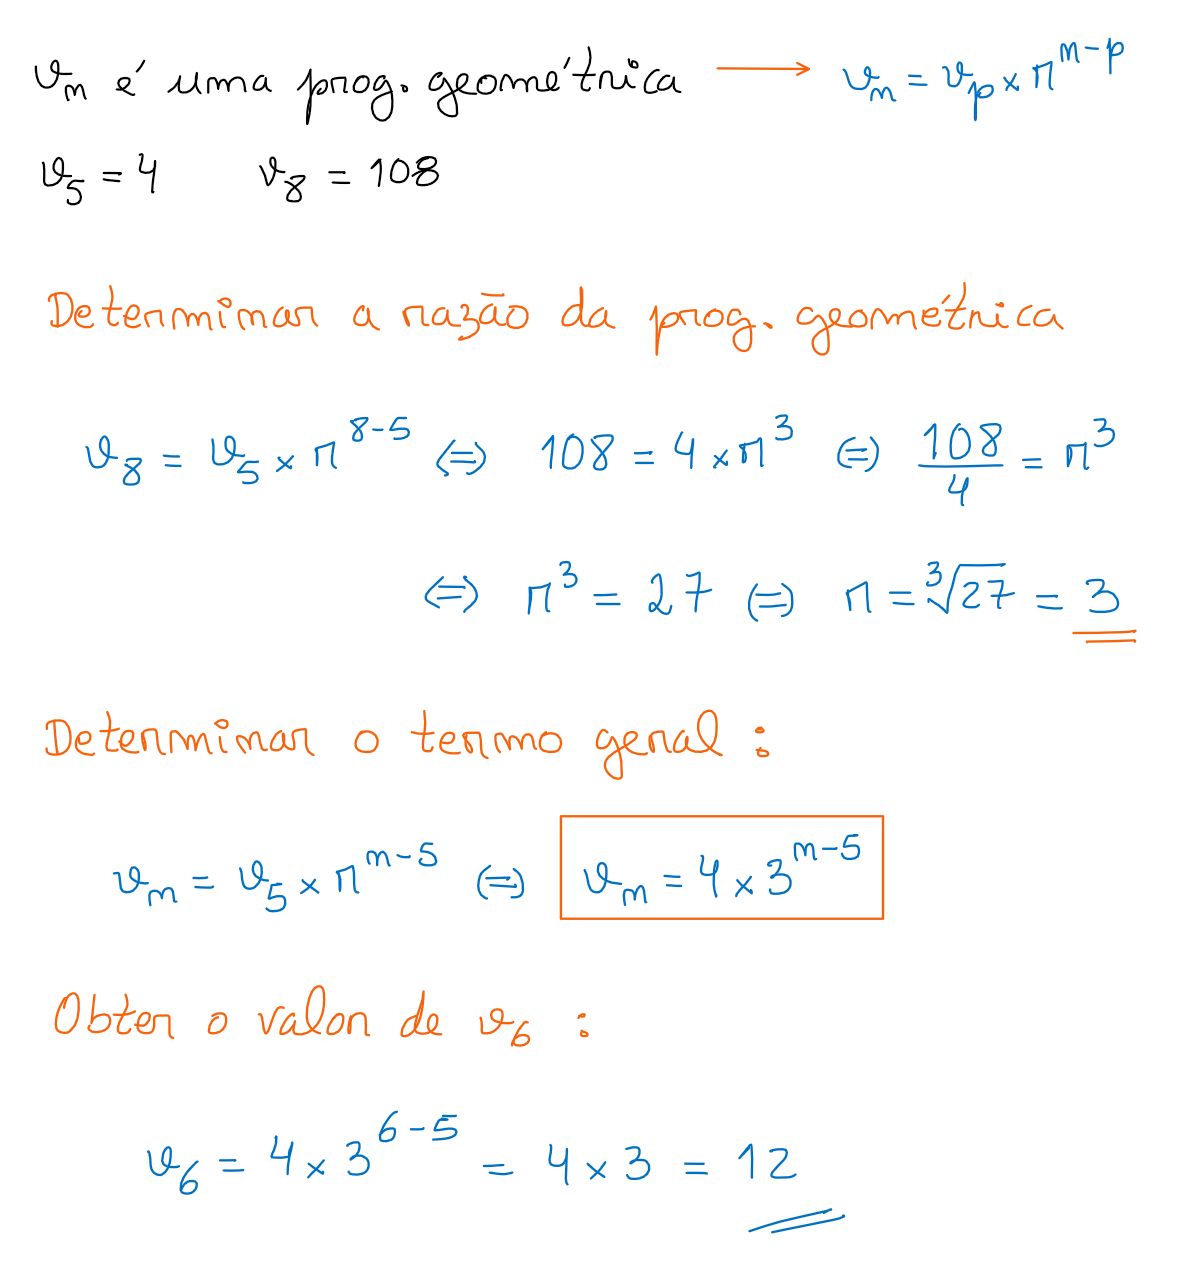 vₙ é uma prog. geométrica ⟶ vₙ = vₚ × rⁿ⁻ᵖ
v₅ = 4 v₈ = 108
Determinar a razão da prog. geométrica
v₈ = v₅ × r⁸⁻⁵ ⇔ 108 = 4 × r³ ⇔ 108/4 = r³
⇔ r³ = 27 ⇔ r = ∛27 = 3
Determinar o termo geral :
vₙ = v₅ × rⁿ⁻⁵ ⇔ vₙ = 4 × 3ⁿ⁻⁵
Obter o valor de v₆ :
v₆ = 4 × 3⁶⁻⁵ = 4 × 3 = 12